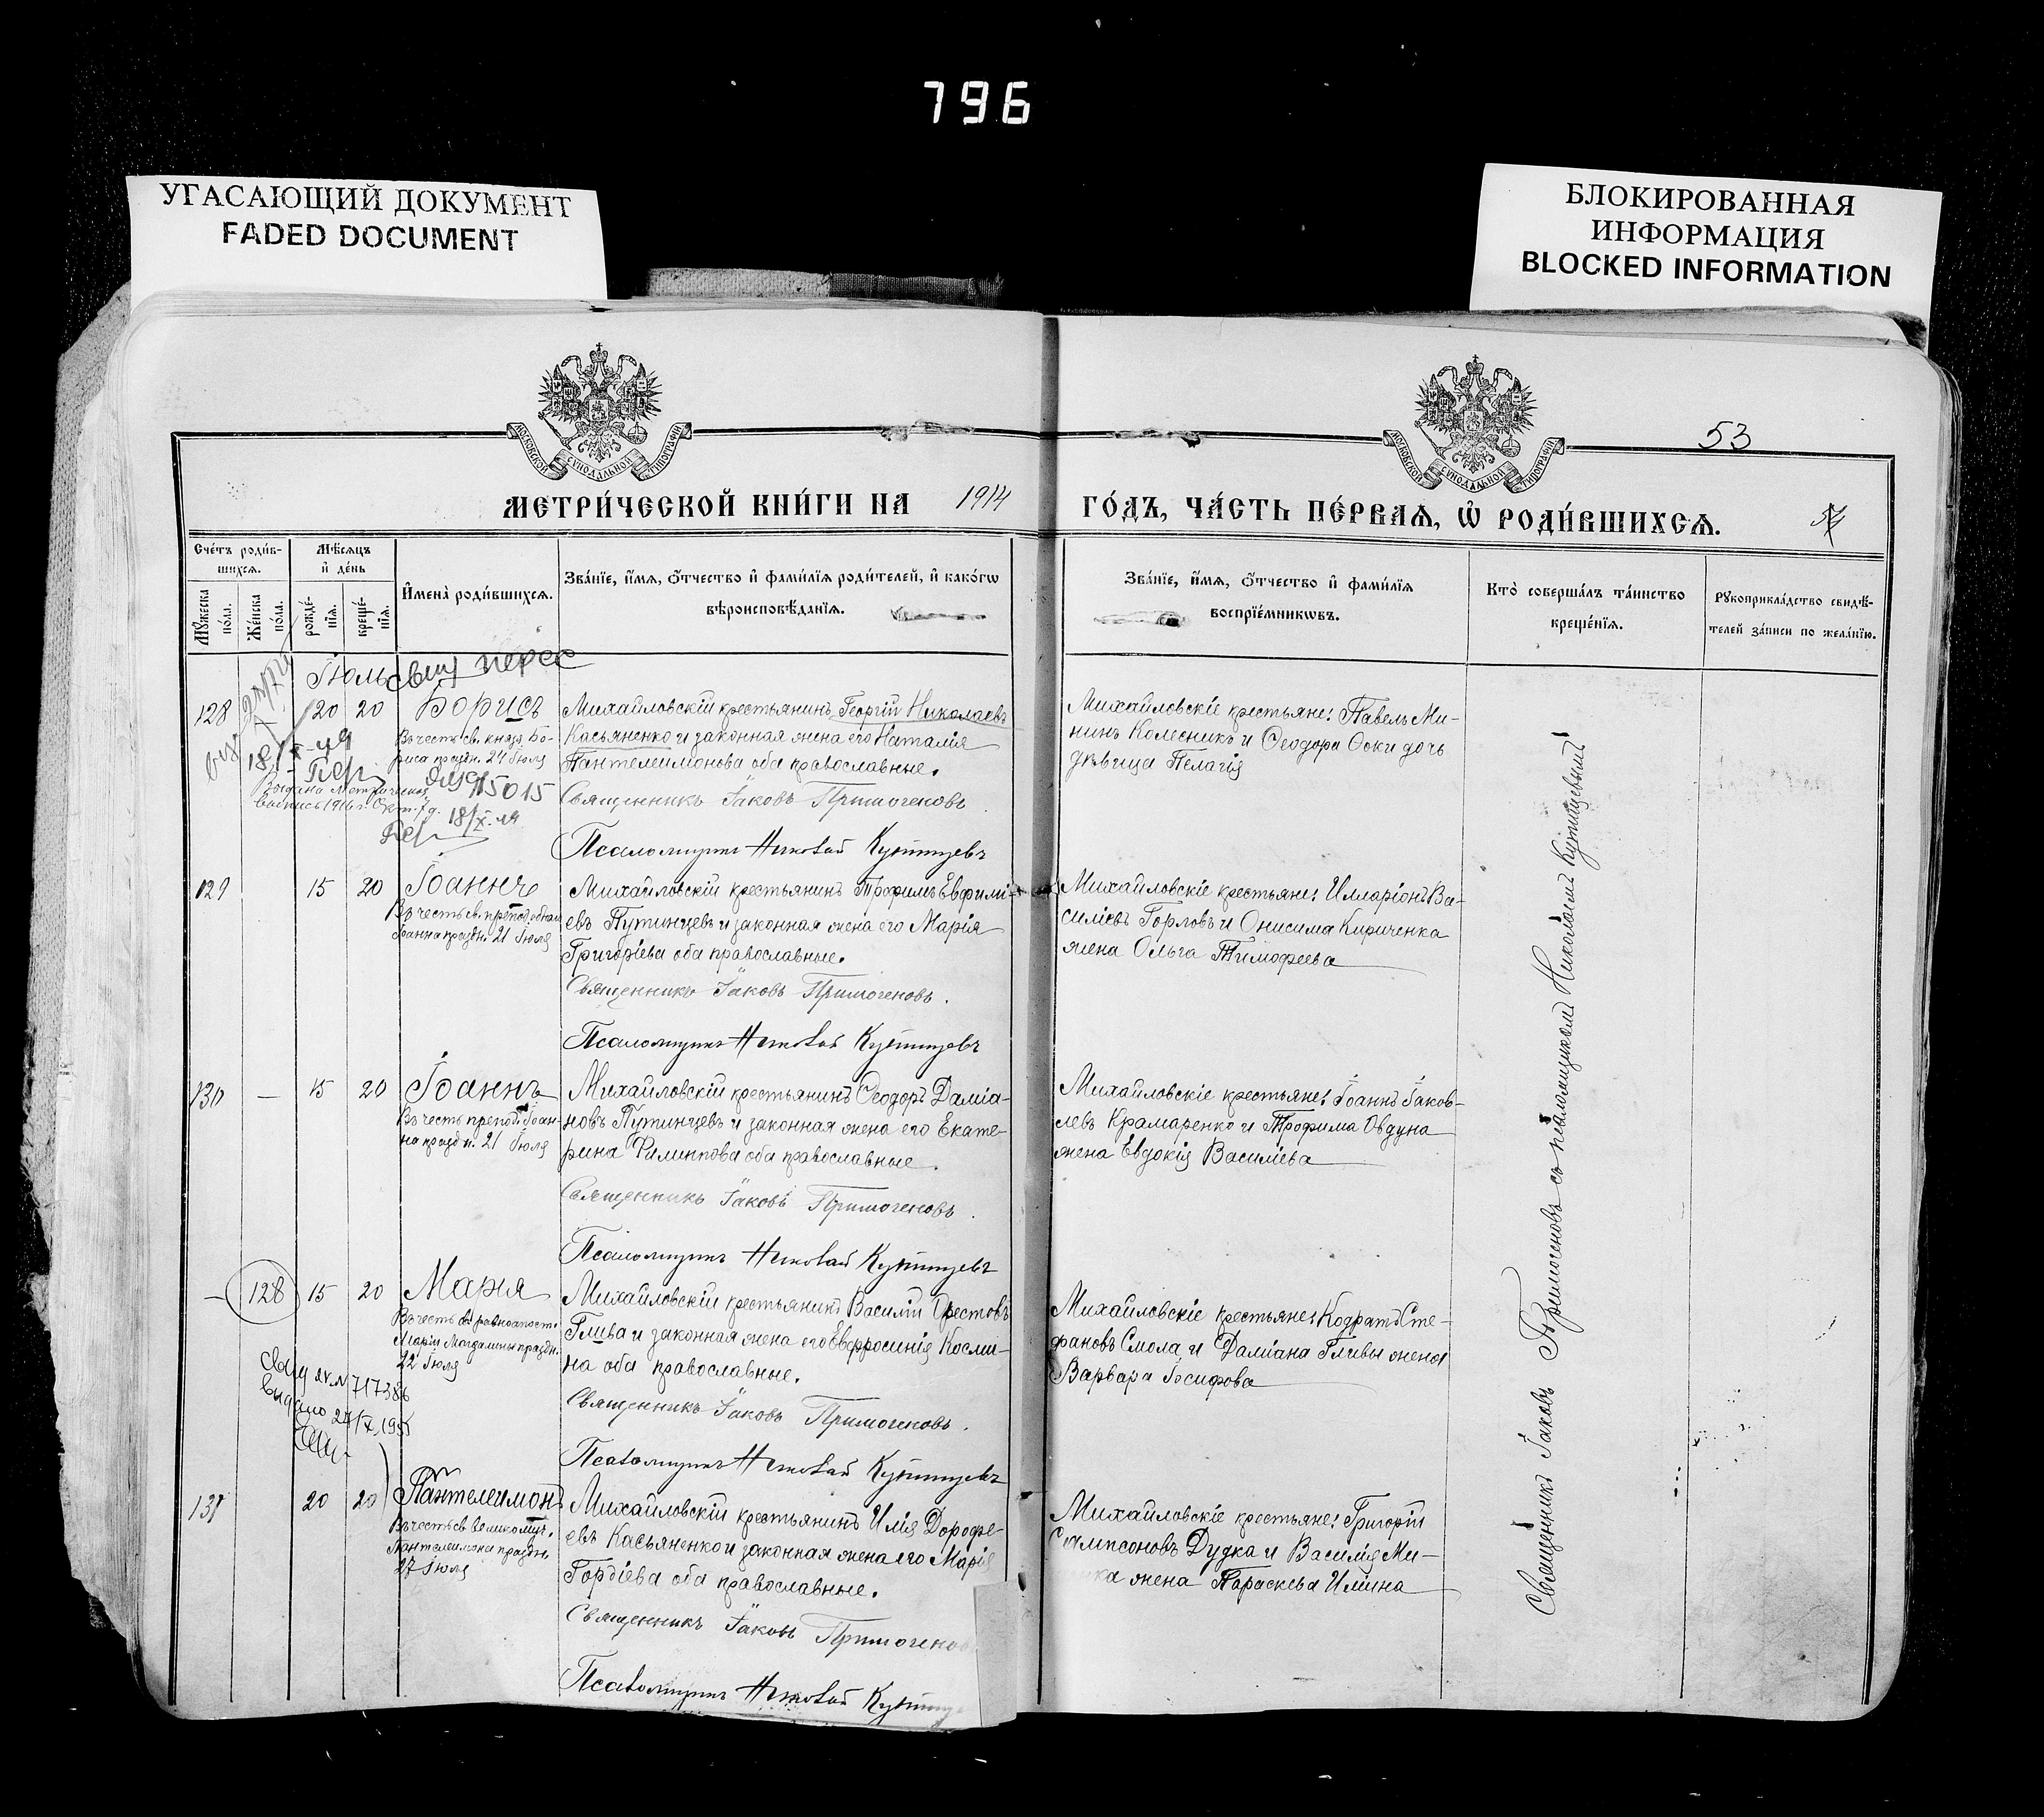 796
УГАСАЮЩИЙ ДОКУМЕНТ
FADED DOCUMENT
БЛОКИРОВАННАЯ
ИНФОРМАЦИЯ
BLOCKED INFORMATION
МОСКОВСКОЙ СѴНОДАЛЬНОЙ ТИПОГРАФІИ
МОСКОВСКОЙ СѴНОДАЛЬНОЙ ТИПОГРАФІИ
53
МЕТРИ́ЧЕСКОЙ КНИ́ГИ НА 1914
ГО́ДЪ, ЧА́СТЬ ПЕ́РВАѦ, Ѡ҆ РОДИ́ВШИХСѦ.
Сче́тъ роди́в-
шихсѧ.
Мꙋ́жеска по́ла.
Же́нска по́ла.
Мѣ́сѧцъ
и҆ де́нь
рожде́-
нїѧ.
креще́-
нїѧ.
И҆мена̀ роди́вшихсѧ.
Зва́нїе, и҆́мѧ, ѻ҆́тчество и҆ фами́лїѧ роди́телей, и҆ како́гѡ
вѣроисповѣ́данїѧ.
Зва́нїе, и҆́мѧ, ѻ҆́тчество и҆ фами́лїѧ
воспрїе́мникѡвъ.
Кто̀ соверша́лъ та́инство
креще́нїѧ.
Рꙋкоприкла́дство свидѣ́-
телей за́писи по жела́нїю.
Іюль
128
20 20
Борисъ
Въ честь св. князя Бо-
риса праздн. 24 Іюля
Михайловскій крестьянинъ Георгій Николаевъ
Касьяненко и законная жена его Наталія
Пантелеимонова оба православные.
Священникъ Іаковъ Примогеновъ
Псаломщикъ Николай Купинцевъ
Михайловскіе крестьяне: Павелъ Ми-
нинъ Колесникъ и Ѳеодора Оски дочь
дѣвица Пелагія
Выдана метрическая
выпись 1916 г. Окт. 7 д.
18/X
129
15 20
Іоаннъ
Въ честь св. преподобнаго
Іоанна праздн. 21 Іюля
Михайловскій крестьянинъ Трофимъ Евфимі-
евъ Путинцевъ и законная жена его Марія
Григоріева оба православные.
Священникъ Іаковъ Примогеновъ.
Псаломщикъ Николай Купинцевъ
Михайловскіе крестьяне: Илларіонъ Ва-
силіевъ Горловъ и Онисима Кириченка
жена Ольга Тимофеева
130 —
15 20
Іоаннъ
Въ честь препод. Іоан-
на праздн. 21 Іюля
Михайловскій крестьянинъ Ѳеодоръ Даміа-
новъ Путинцевъ и законная жена его Екате-
рина Филиппова оба православные.
Священникъ Іаковъ Примогеновъ.
Псаломщикъ Николай Купинцевъ
Михайловскіе крестьяне: Іоаннъ Іаков-
левъ Крамаренко и Трофима Овдуна
жена Евдокія Василіева
— 128
15 20
Марія
Въ честь св. равноапост.
Маріи Магдалины праздн.
22 Іюля
Михайловскій крестьянинъ Василій Орестовъ
Глива и законная жена его Евфросинія Косми-
на оба православные.
Священникъ Іаковъ Примогеновъ.
Псаломщикъ Николай Купинцевъ
Михайловскіе крестьяне: Кодратъ Сте-
фановъ Смола и Даміана Гливы жена
Варвара Іосифова
717386
131
20 20
Пантелеимонъ
Въ честь св. великомуч.
Пантелеимона праздн.
27 Іюля
Михайловскій крестьянинъ Илія Дорофе-
евъ Касьяненко и законная жена его Марія
Гордіева оба православные.
Священникъ Іаковъ Примогенов
Псаломщикъ Николай Купинце
Михайловскіе крестьяне: Григорій
Сампсоновъ Дудка и Василія Ми-
жена Параскева Иліина
Священникъ Іаковъ Примогеновъ съ псаломщикомъ Николаемъ Купинцевымъ